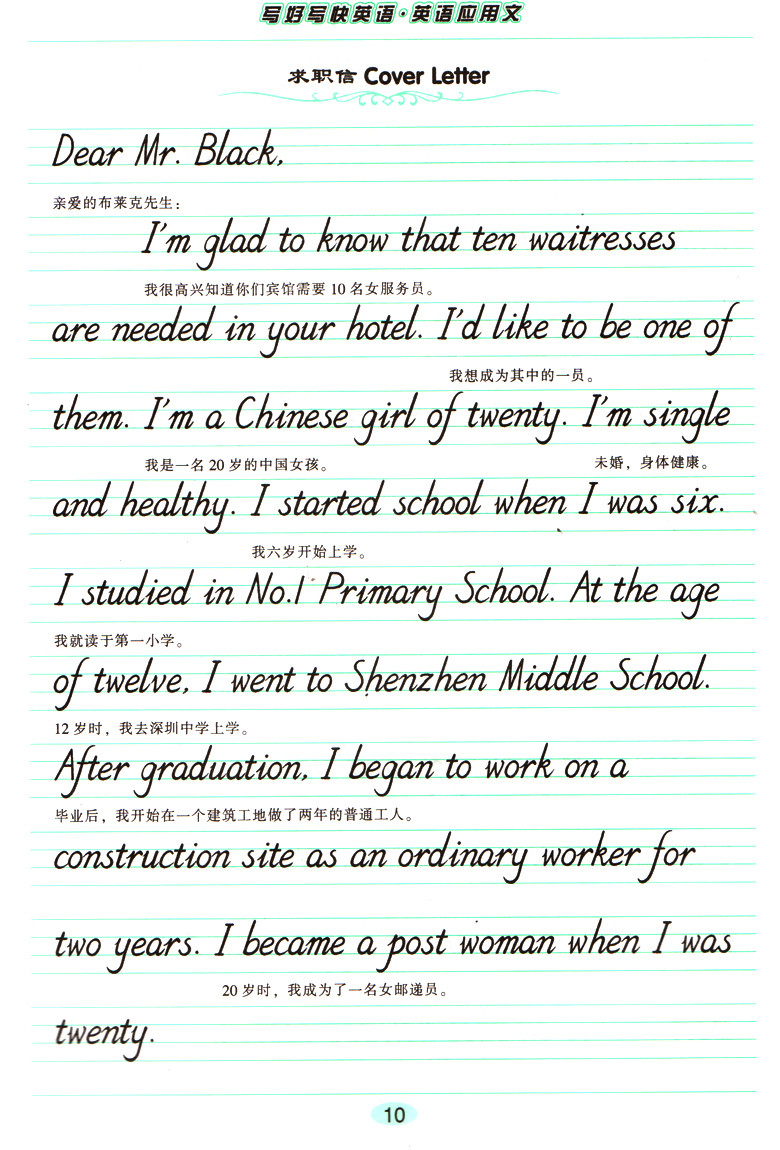 写好写快英语·英语应用文
求职信 Cover Letter
Dear Mr. Black,
亲爱的布莱克先生：
I'm glad to know that ten waitresses
我很高兴知道你们宾馆需要 10 名女服务员。
are needed in your hotel. I'd like to be one of
我想成为其中的一员。
them. I'm a Chinese girl of twenty. I'm single
我是一名 20 岁的中国女孩。 未婚，身体健康。
and healthy. I started school when I was six.
我六岁开始上学。
I studied in No.1 Primary School. At the age
我就读于第一小学。
of twelve, I went to Shenzhen Middle School.
12 岁时，我去深圳中学上学。
After graduation, I began to work on a
毕业后，我开始在一个建筑工地做了两年的普通工人。
construction site as an ordinary worker for
two years. I became a post woman when I was
20 岁时，我成为了一名女邮递员。
twenty.
10